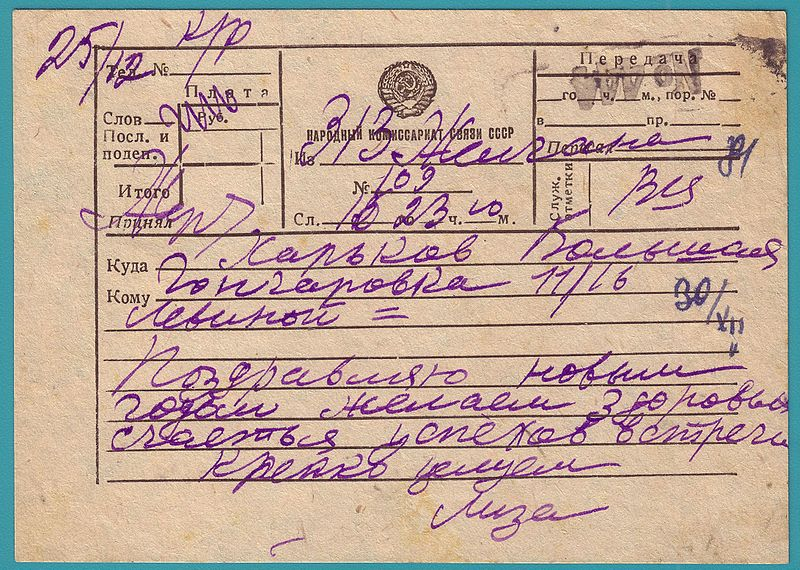 25/12
к/р
Тел. №
Плата
Слов
Руб.
Посл. и
поден.
Итого
Принял
НАРОДНЫЙ КОМИССАРИАТ СВЯЗИ СССР
Из 313
№ 109
Сл. 16 го 23 ч. 10 м.
Передача
го ч. м., пор. №
в пр.
Передал
Служ.
отметки
Куда Харьков Большая
Кому Гончаровка 11/16
Левиной =
30/XII
Поздравляю новым
годом желаем здоровья
счастья успехов встречи
Крепко целуем
Лиза